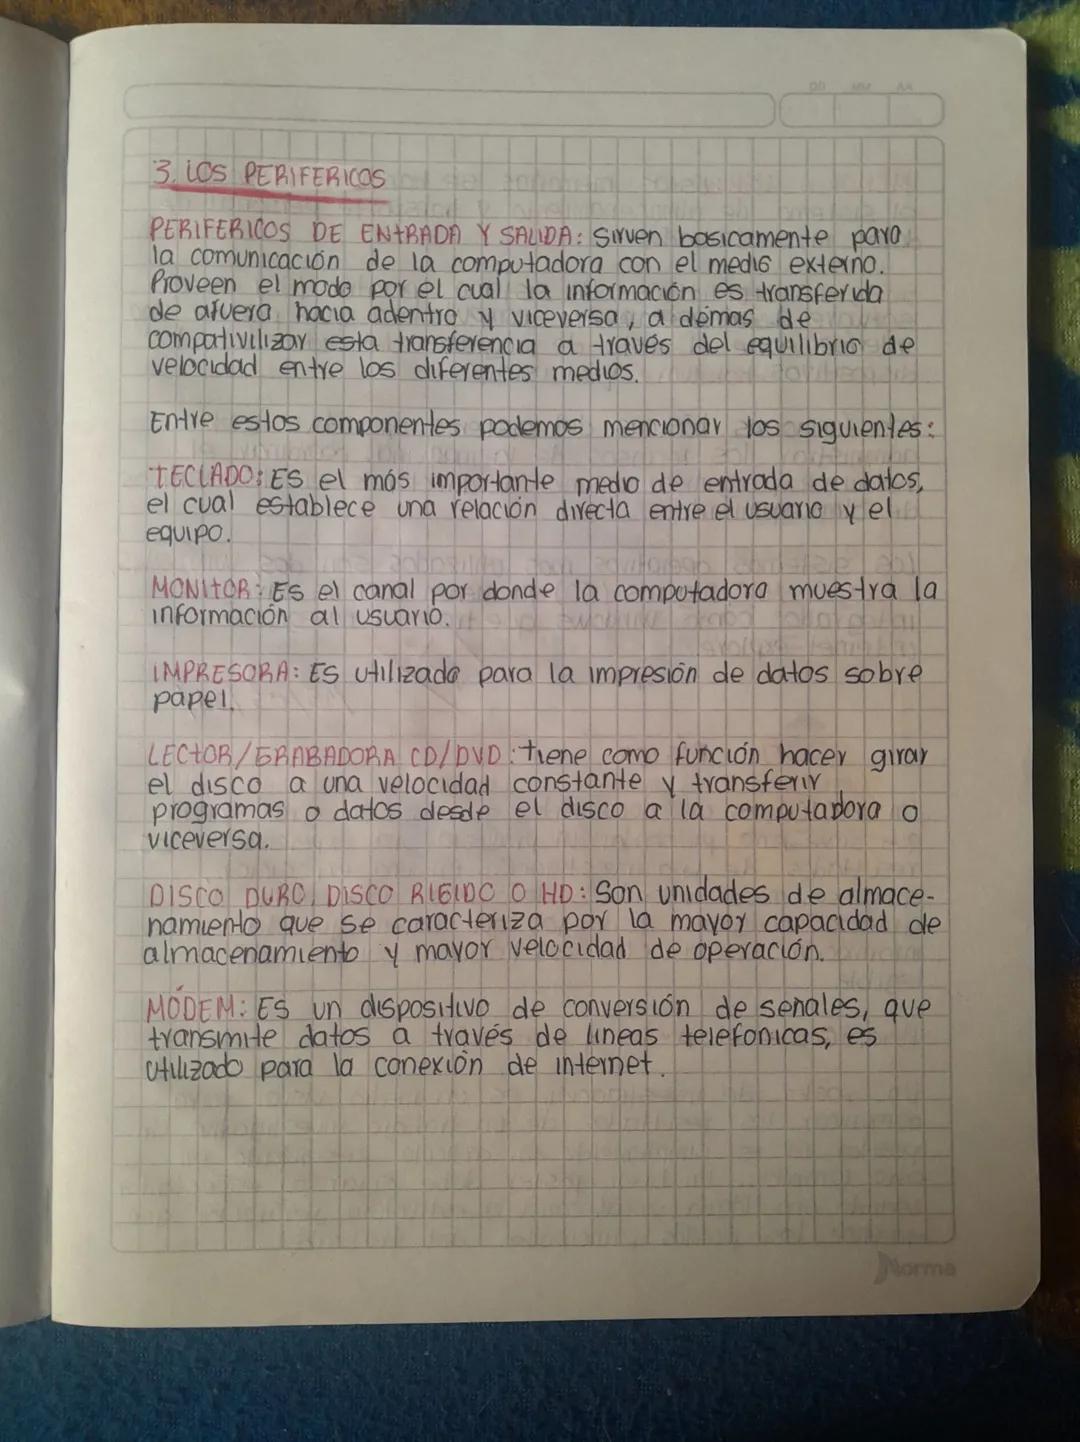 DD MM AA
3. LOS PERIFERICOS
PERIFERICOS DE ENTRADA Y SALIDA: Sirven basicamente para
la comunicación de la computadora con el medio externo.
Proveen el modo por el cual la información es transferida
de afuera hacia adentro y viceversa, a demas de
compativilizar esta transferencia a través del equilibrio de
velocidad entre los diferentes medios.
Entre estos componentes podemos mencionar los siguientes:
TECLADO: ES el más importante medio de entrada de datos,
el cual establece una relación directa entre el usuario y el
equipo.
MONITOR: Es el canal por donde la computadora muestra la
información al usuario.
IMPRESORA: ES utilizada para la impresión de datos sobre
papel.
LECTOR/GRABADORA CD/DVD: tiene como función hacer girar
el disco a una velocidad constante y transferir
programas o datos desde el disco a la computadora o
viceversa.
DISCO DURO, DISCO RIGIDO O HD: Son unidades de almace-
namiento que se caracteriza por la mayor capacidad de
almacenamiento y mayor velocidad de operación.
MÓDEM: Es un dispositivo de conversión de señales, que
transmite datos a través de lineas telefonicas, es
utilizado para la conexión de internet.
Norma